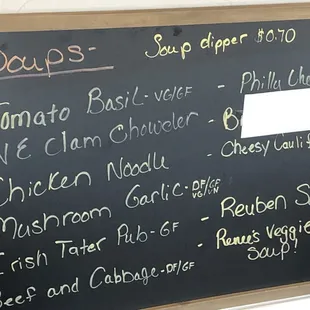 Soups-
Soup dipper $0.70
Tomato Basil-VG/GF
NE Clam Chowder
Chicken Noodle
Mushroom Garlic-DF/GF
VG/VN
Irish Tater Pub-GF
Beef and Cabbage-DF/GF
- Philly
-
- Cheesy
- Reuben
- Renee's Veggie
Soup!